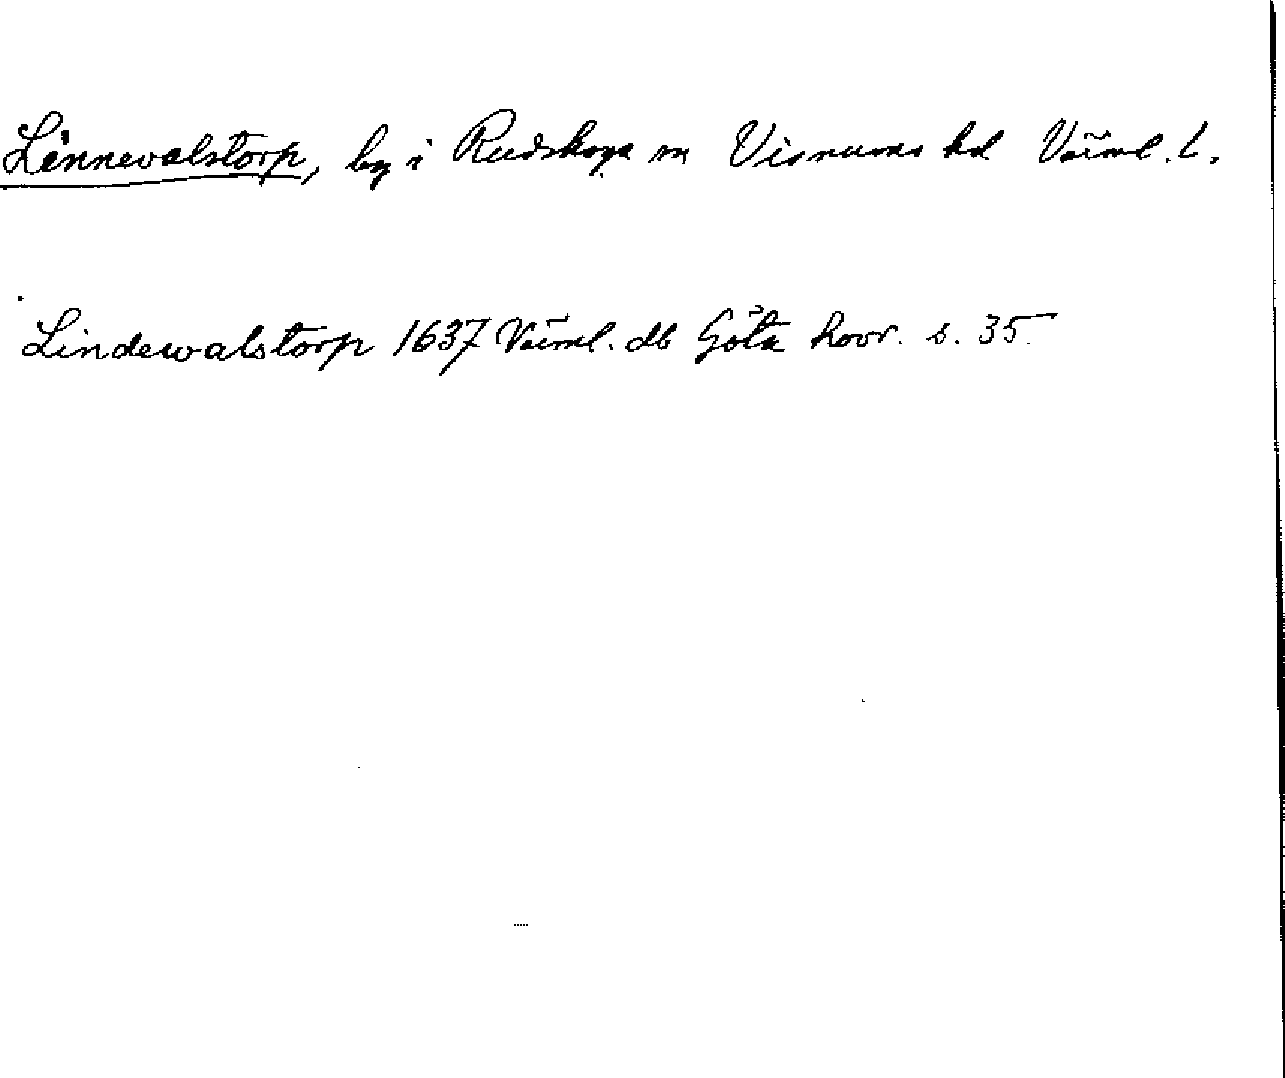 Linnevalstorp, by i Rudskoga sn Visnums hd Värml. l.
Lindewalstorp 1637 Värml. db Göta hovr. s. 35.